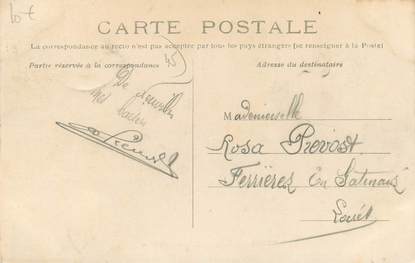 CARTE POSTALE
La correspondance au recto n'est pas acceptée par tous les pays étrangers (Se renseigner à la Poste)
Partie réservée à la correspondance
Adresse du destinataire
45
Mademoiselle
Rosa Prevost
Ferrières en Gatinais
Loiret